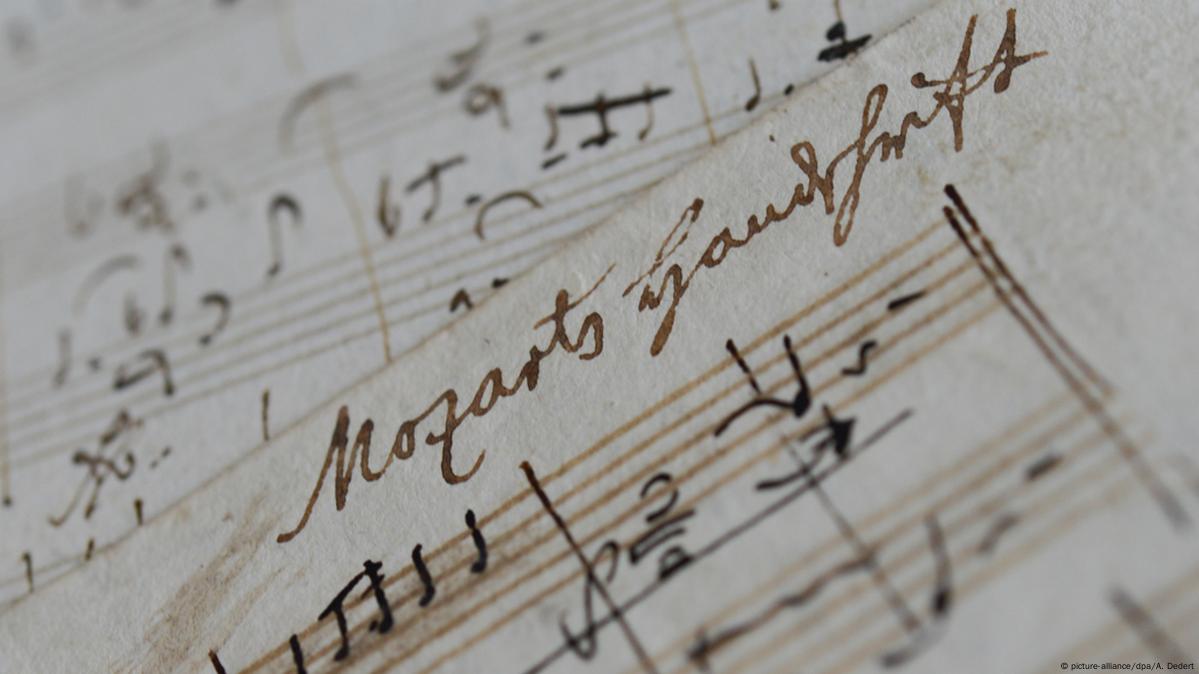 Mozarts Handschrift
© picture-alliance/dpa/A. Dedert